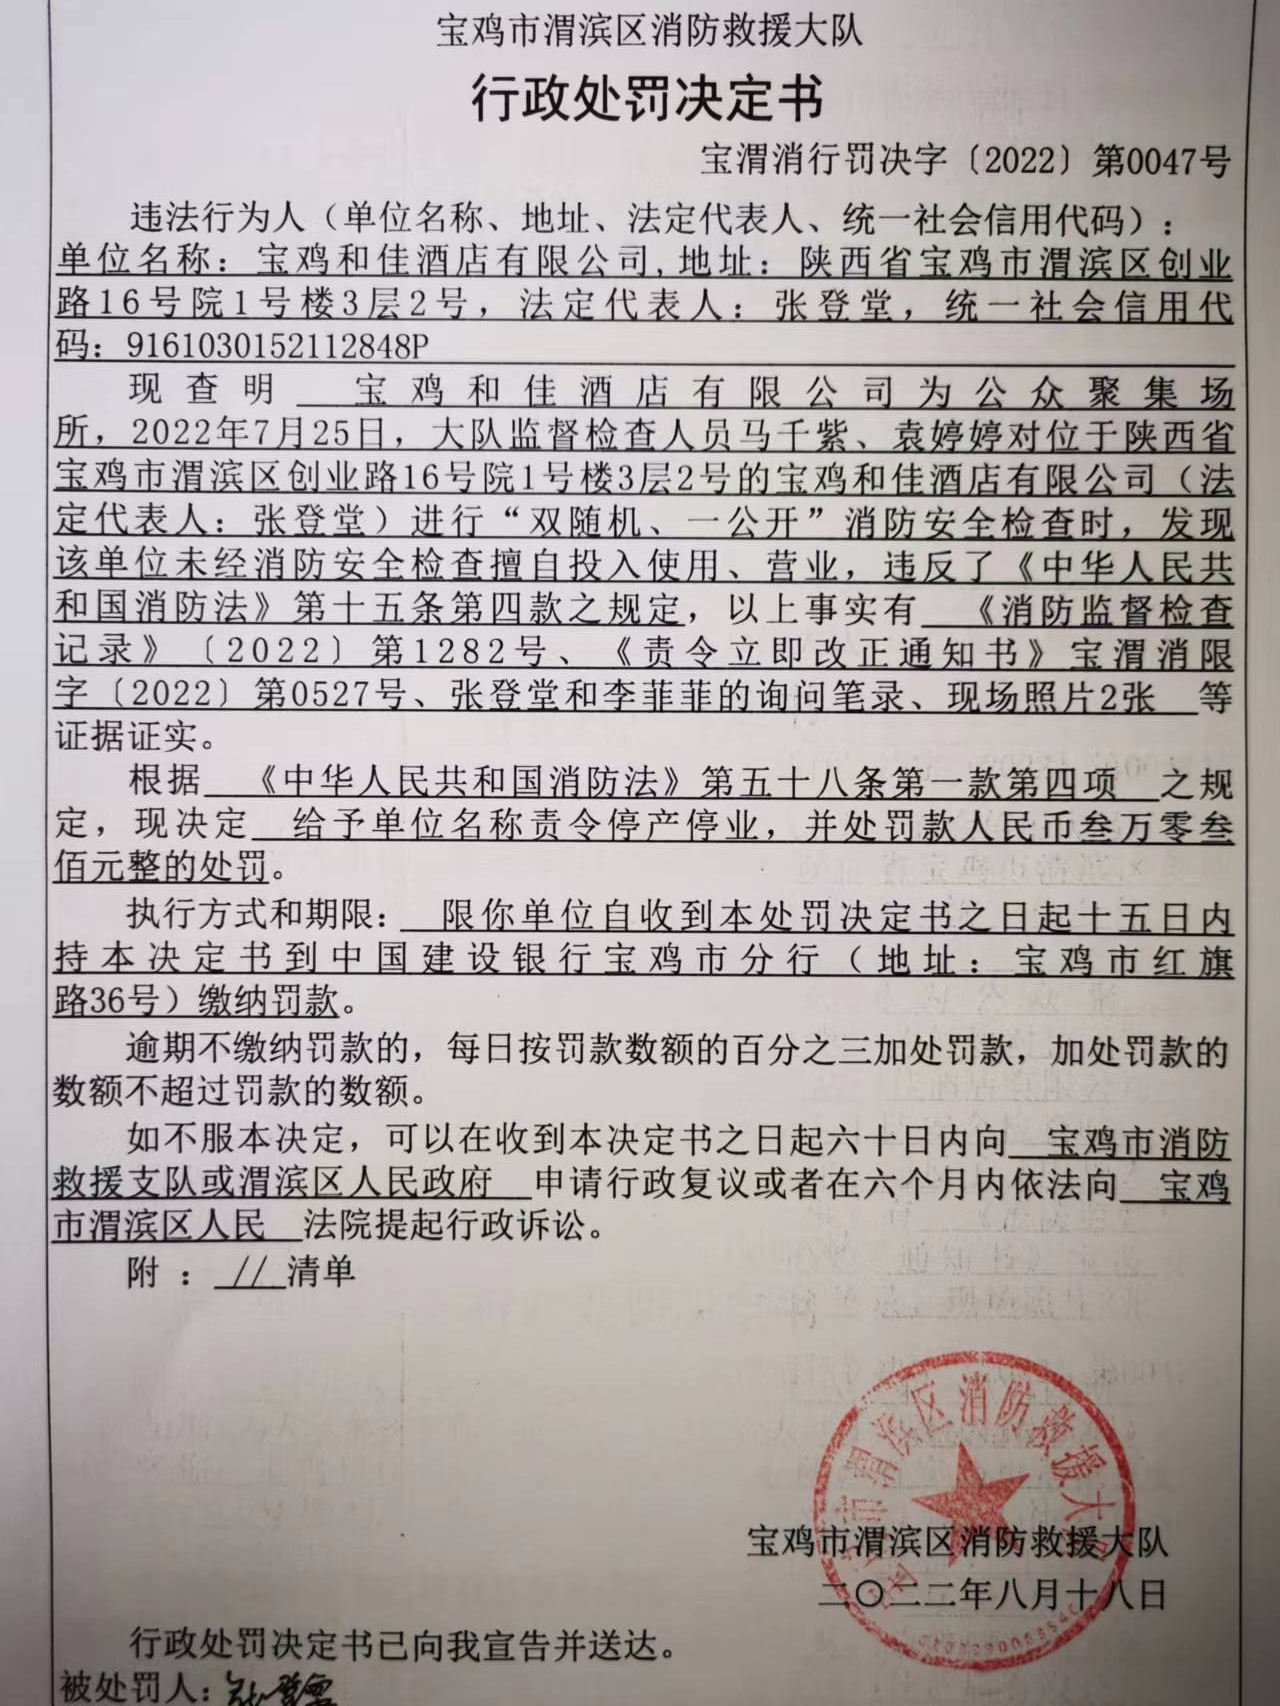 宝鸡市渭滨区消防救援大队
行政处罚决定书
宝渭消行罚决字〔2022〕第0047号
违法行为人（单位名称、地址、法定代表人、统一社会信用代码）：
单位名称：宝鸡和佳酒店有限公司,地址：陕西省宝鸡市渭滨区创业
路16号院1号楼3层2号，法定代表人：张登堂，统一社会信用代
码：9161030152112848P
现查明 宝鸡和佳酒店有限公司为公众聚集场
所，2022年7月25日，大队监督检查人员马千紫、袁婷婷对位于陕西省
宝鸡市渭滨区创业路16号院1号楼3层2号的宝鸡和佳酒店有限公司（法
定代表人：张登堂）进行“双随机、一公开”消防安全检查时，发现
该单位未经消防安全检查擅自投入使用、营业，违反了《中华人民共
和国消防法》第十五条第四款之规定，以上事实有 《消防监督检查
记录》〔2022〕第1282号、《责令立即改正通知书》宝渭消限
字〔2022〕第0527号、张登堂和李菲菲的询问笔录、现场照片2张 等
证据证实。
根据 《中华人民共和国消防法》第五十八条第一款第四项 之规
定，现决定 给予单位名称责令停产停业，并处罚款人民币叁万零叁
佰元整的处罚。
执行方式和期限： 限你单位自收到本处罚决定书之日起十五日内
持本决定书到中国建设银行宝鸡市分行（地址：宝鸡市红旗
路36号）缴纳罚款。
逾期不缴纳罚款的，每日按罚款数额的百分之三加处罚款，加处罚款的
数额不超过罚款的数额。
如不服本决定，可以在收到本决定书之日起六十日内向 宝鸡市消防
救援支队或渭滨区人民政府 申请行政复议或者在六个月内依法向 宝鸡
市渭滨区人民 法院提起行政诉讼。
附 ： // 清单
宝鸡市渭滨区消防救援大队
二〇二二年八月十八日
行政处罚决定书已向我宣告并送达。
被处罚人：